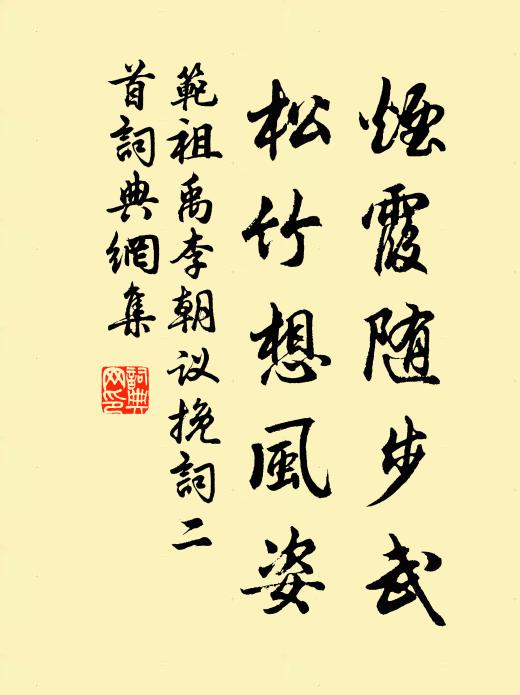 煙霞随步武
松竹想風姿
範祖禹李朝议挽詞二
首詞典網集
詞典
网印